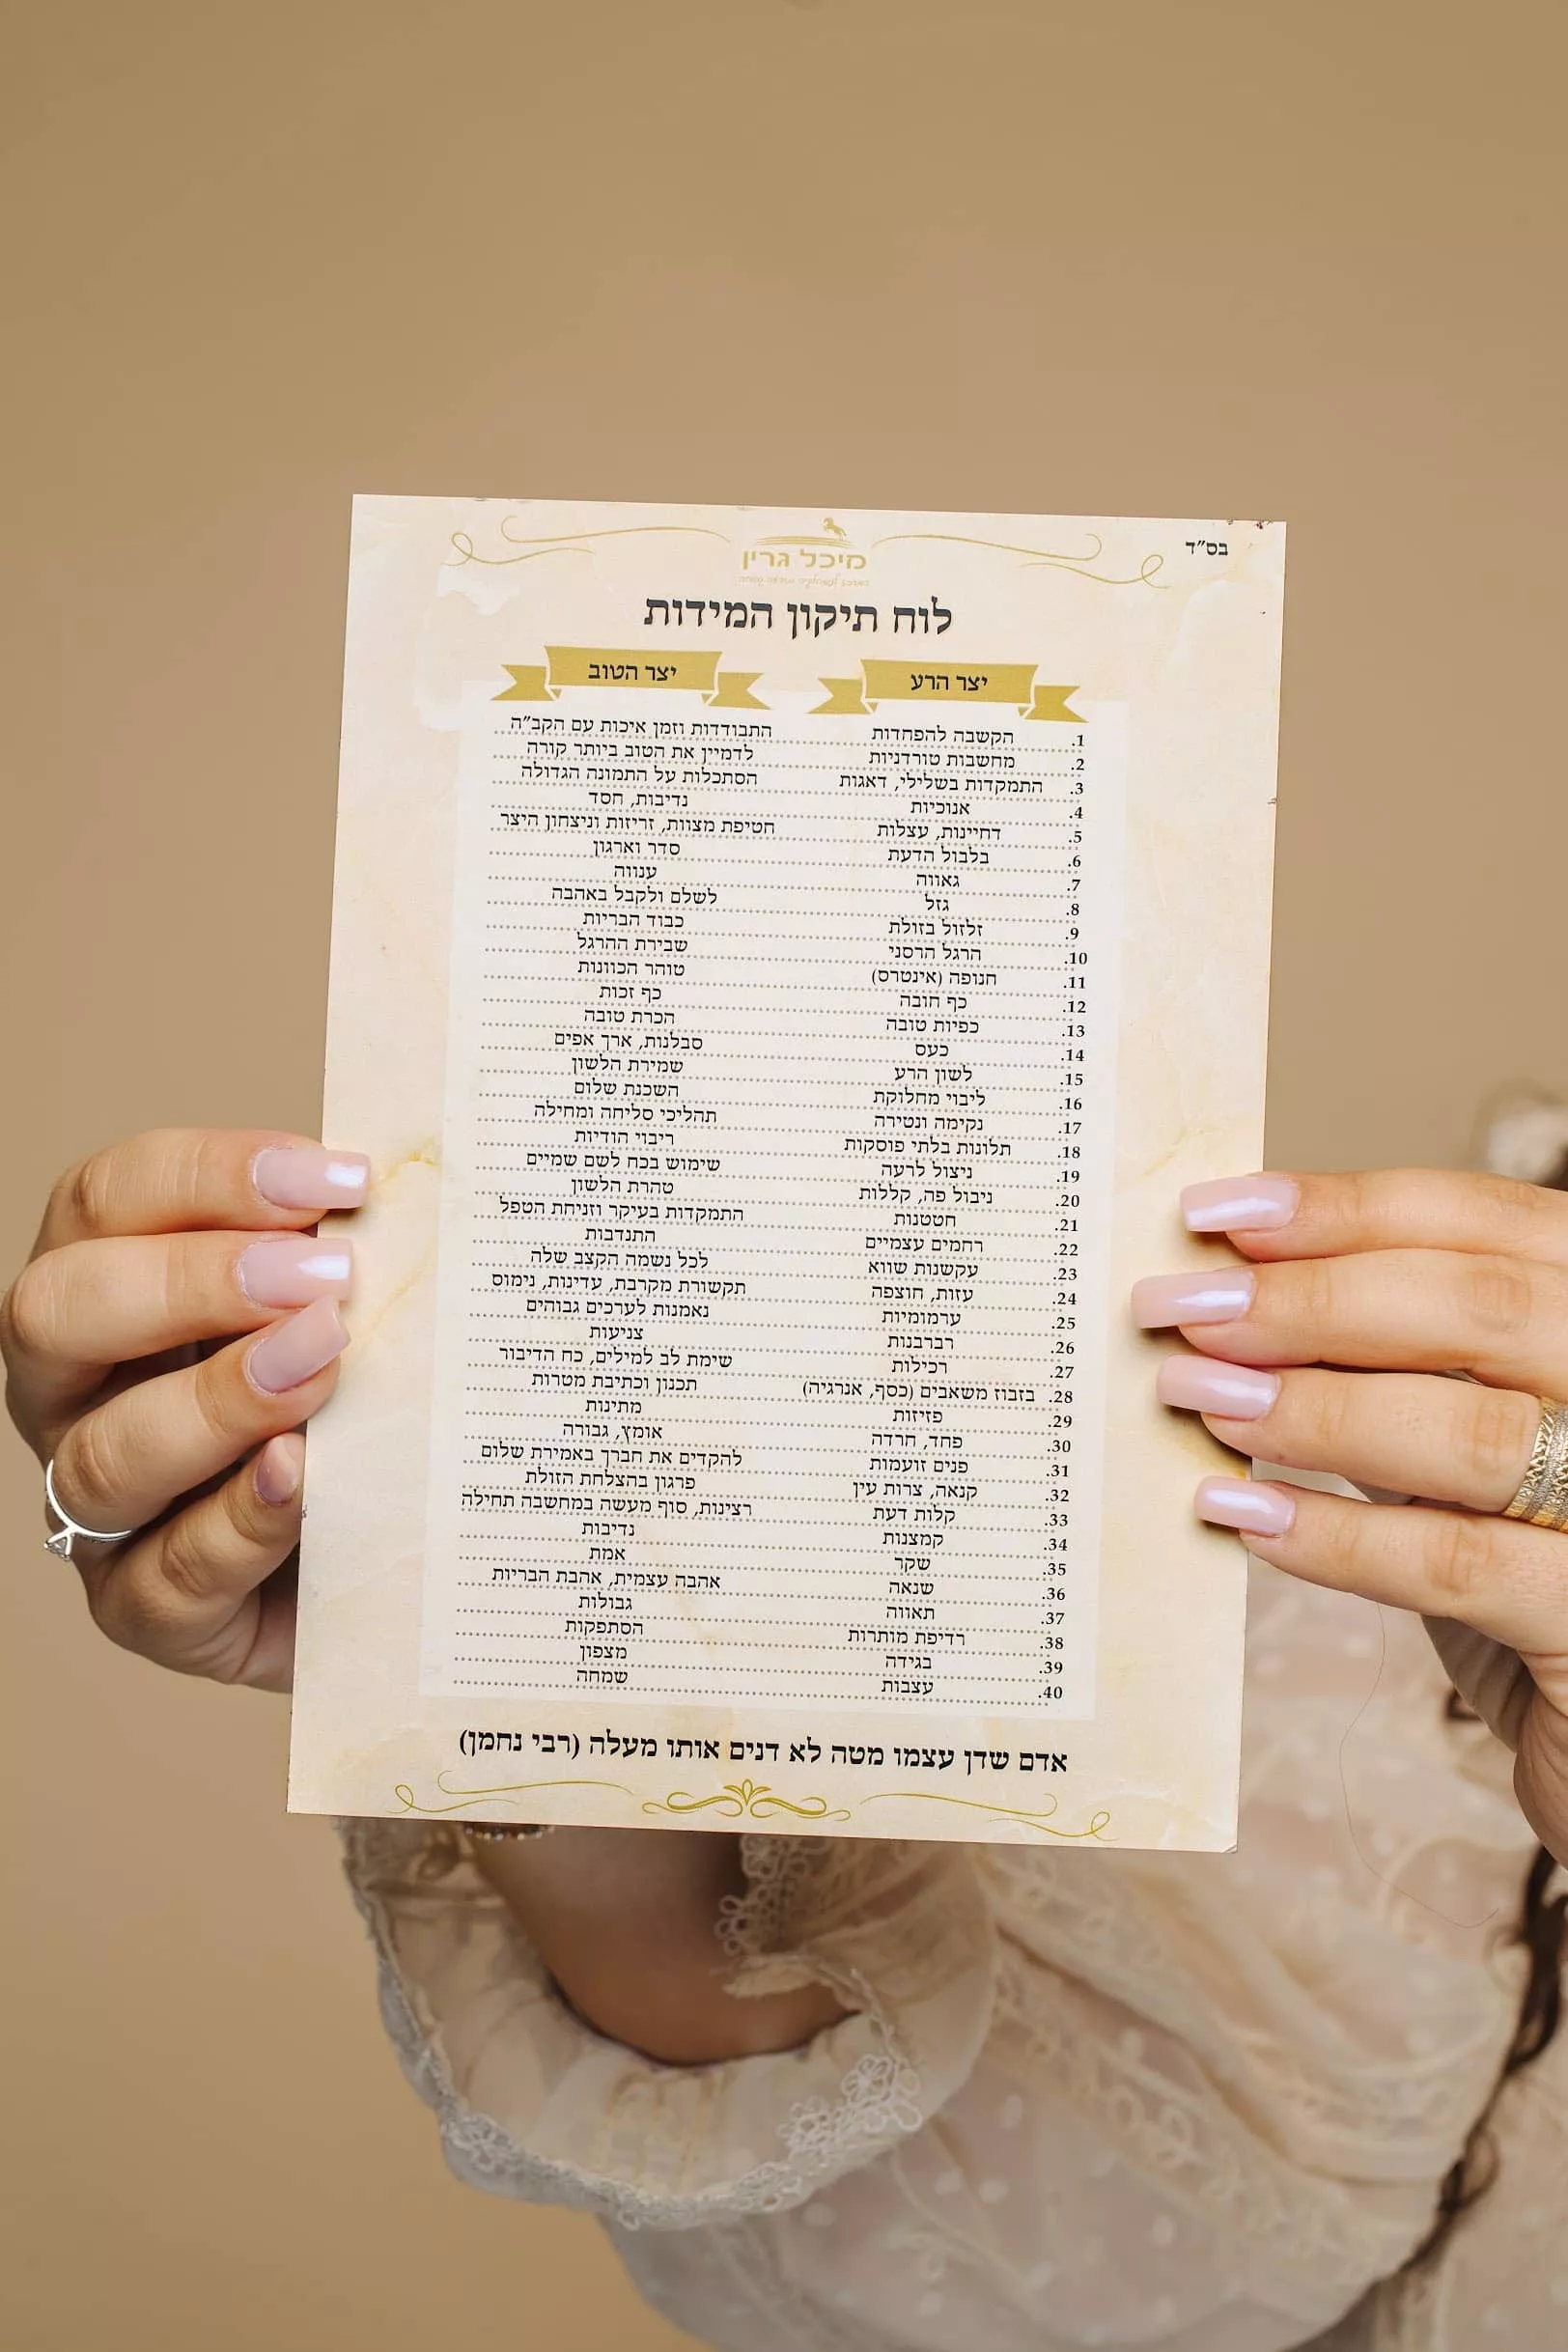 בס"ד
מיכל גרין
לוח תיקון המידות
יצר הרע יצר הטוב
1. הקשבה להפחדות התבודדות וזמן איכות עם הקב"ה
2. מחשבות טורדניות לדמיין את הטוב ביותר קורה
3. התמקדות בשלילי, דאגות הסתכלות על התמונה הגדולה
4. אנוכיות נדיבות, חסד
5. דחיינות, עצלות חטיפת מצוות, זריזות וניצחון היצר
6. בלבול הדעת סדר וארגון
7. גאווה ענווה
8. גזל לשלם ולקבל באהבה
9. זלזול בזולת כבוד הבריות
10. הרגל הרסני שבירת ההרגל
11. חנופה (אינטרס) טוהר הכוונות
12. כף חובה כף זכות
13. כפיות טובה הכרת טובה
14. כעס סבלנות, ארך אפים
15. לשון הרע שמירת הלשון
16. ליבוי מחלוקת השכנת שלום
17. נקימה ונטירה תהליכי סליחה ומחילה
18. תלונות בלתי פוסקות ריבוי הודיות
19. ניצול לרעה שימוש בכח לשם שמיים
20. ניבול פה, קללות טהרת הלשון
21. חטטנות התמקדות בעיקר וזניחת הטפל
22. רחמים עצמיים התנדבות
23. עקשנות שווא לכל נשמה הקצב שלה
24. עזות, חוצפה תקשורת מקרבת, עדינות, נימוס
25. ערמומיות נאמנות לערכים גבוהים
26. רברבנות צניעות
27. רכילות שימת לב למילים, כח הדיבור
28. בזבוז משאבים (כסף, אנרגיה) תכנון וכתיבת מטרות
29. פזיזות מתינות
30. פחד, חרדה אומץ, גבורה
31. פנים זועמות להקדים את חברך באמירת שלום
32. קנאה, צרות עין פרגון בהצלחת הזולת
33. קלות דעת רצינות, סוף מעשה במחשבה תחילה
34. קמצנות נדיבות
35. שקר אמת
36. שנאה אהבה עצמית, אהבת הבריות
37. תאווה גבולות
38. רדיפת מותרות הסתפקות
39. בגידה מצפון
40. עצבות שמחה
אדם שדן עצמו מטה לא דנים אותו מעלה (רבי נחמן)